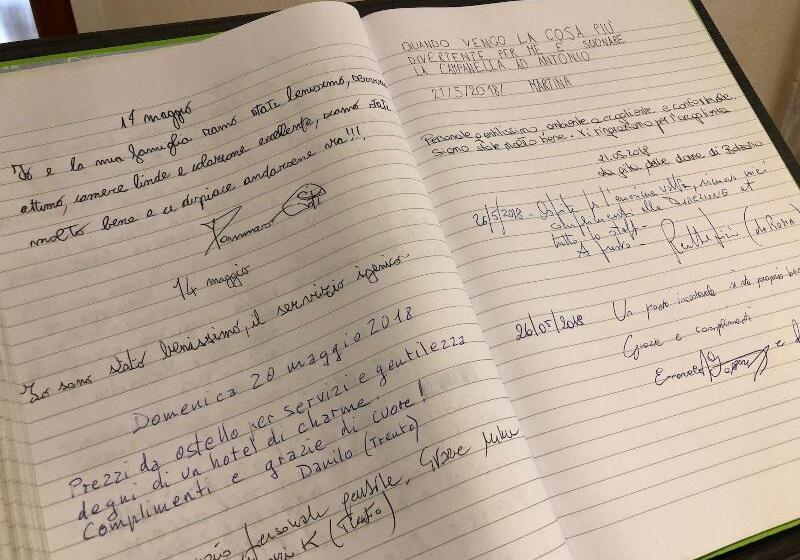 14 maggio
Io e la mia famiglia siamo stati benissimo, servizio
ottimo, camere linde e colazione eccellente, siamo stati
molto bene e ci dispiace andarcene via!!!
Tommaso
14 maggio
Io sono stato benissimo, il servizio igenico.
Domenica 20 maggio 2018
Prezzi da ostello per servizi e gentilezza
degni di un hotel di charme.
Complimenti e grazie di cuore!
Danilo (Trento)
personale gentile. Grazie
K (Trento)
QUANDO VENGO LA COSA PIÙ
DIVERTENTE PER ME È SUONARE
LA CAMPANELLA AD ANTONIO
21/5/2018! MARTINA
Personale gentilissimo, ambiente accogliente e confortevole.
Siamo state molto bene. Vi ringraziamo per l'accoglienza
21.05.2018
gita delle donne di
20/5/2018 - Ospite per l'ennesima volta, rinnovo i miei
complimenti alla Direzione et
tutto lo staff.
A presto -
26/05/2018 Un posto incantevole si sta proprio
Grazie e complimenti